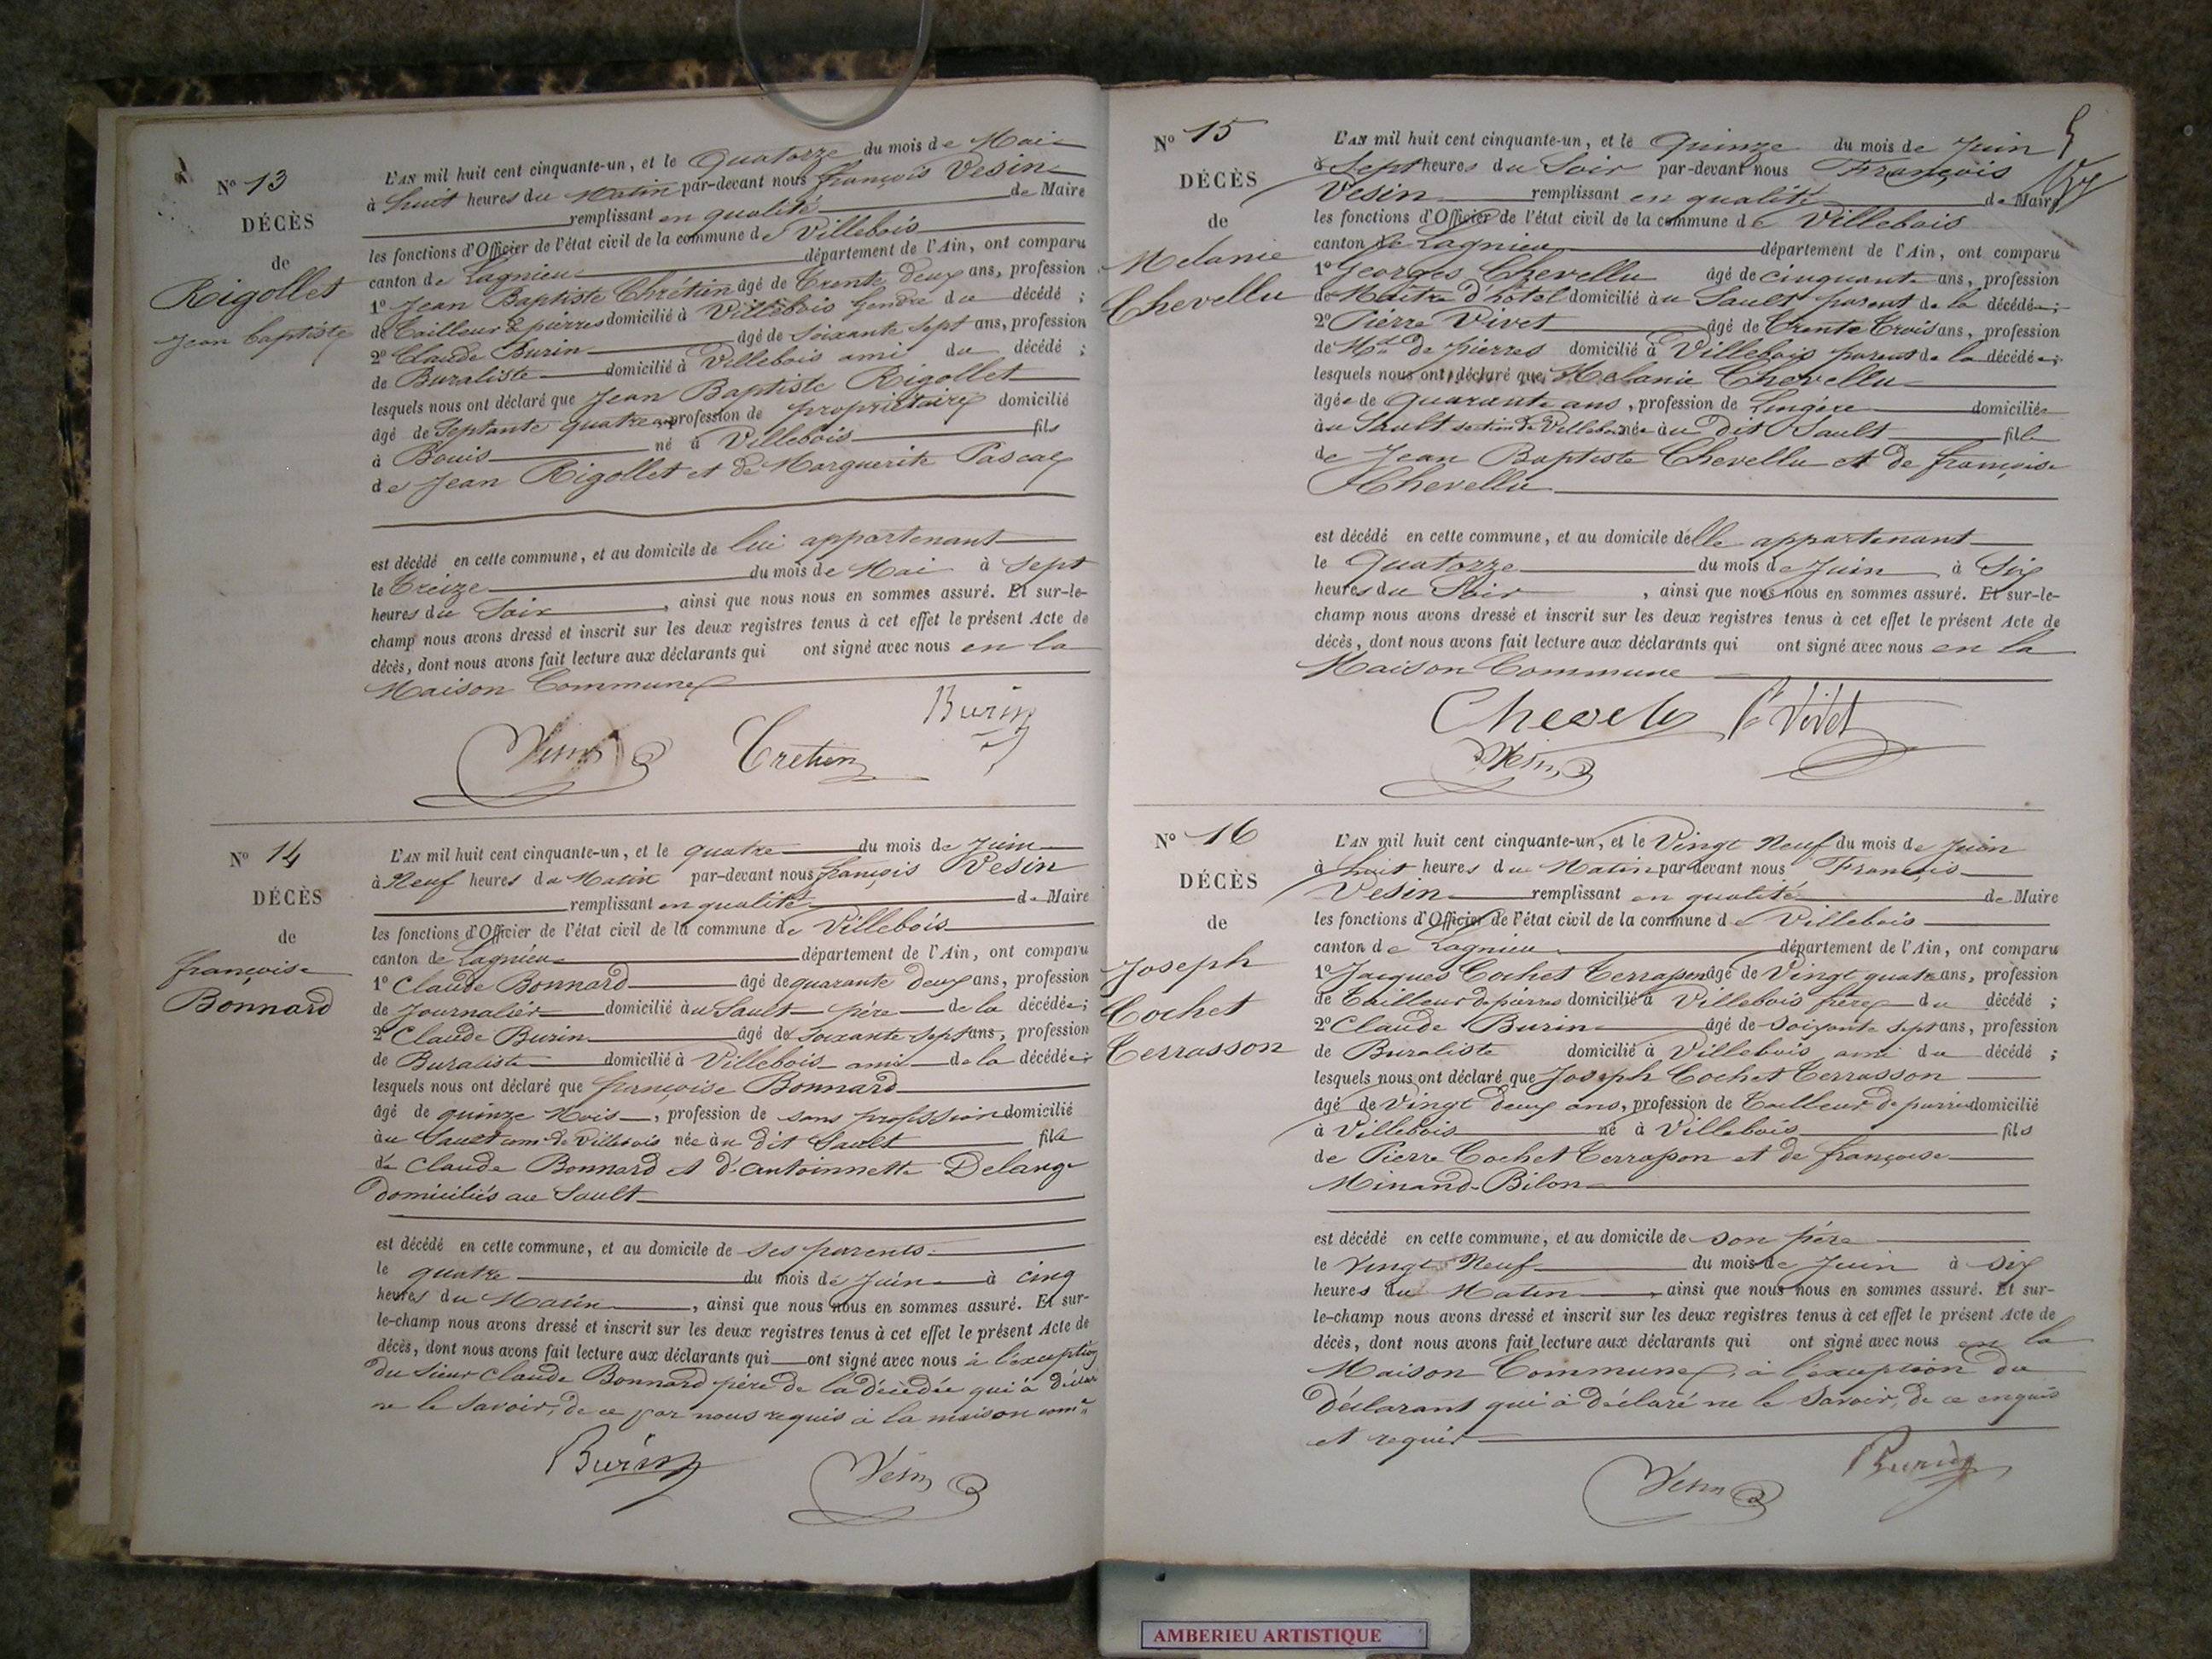 N° 13
DÉCÈS
de
Rigollet
Jean baptiste
L'AN mil huit cent cinquante-un, et le Quatorze du mois de Mai
à huit heures du Matin par-devant nous françois Vesin
remplissant en qualité de Maire
les fonctions d'Officier de l'état civil de la commune de Villebois
canton de Lagnieu département de l'Ain, ont comparu
1° Jean Baptiste Chrétien âgé de Trente deux ans, profession
de Tailleur de pierres domicilié à Villebois Gendre du décédé ;
2° Claude Burin âgé de soixante sept ans, profession
de Buraliste domicilié à Villebois ami du décédé ;
lesquels nous ont déclaré que Jean Baptiste Rigollet
âgé de Septante quatre ans profession de propriétaire domicilié
à Bouis né à Villebois fils
de Jean Rigollet et de Marguerite Pascal
est décédé en cette commune, et au domicile de lui appartenant
le Treize du mois de Mai à sept
heures du Soir , ainsi que nous nous en sommes assuré. Et sur-le-
champ nous avons dressé et inscrit sur les deux registres tenus à cet effet le présent Acte de
décès, dont nous avons fait lecture aux déclarants qui ont signé avec nous en la
Maison Commune
Burin
Vesin Cretien
N° 14
DÉCÈS
de
françoise
Bonnard
L'AN mil huit cent cinquante-un, et le quatre du mois de Juin
à Neuf heures du Matin par-devant nous françois Vesin
remplissant en qualité de Maire
les fonctions d'Officier de l'état civil de la commune de Villebois
canton de Lagnieu département de l'Ain, ont comparu
1° Claude Bonnard âgé de quarante deux ans, profession
de Journalier domicilié au Sault père de la décédée ;
2° Claude Burin âgé de soixante sept ans, profession
de Buraliste domicilié à Villebois ami de la décédée ;
lesquels nous ont déclaré que françoise Bonnard
âgé de quinze Mois , profession de sans profession domicilié
au Sault com. de Villebois née au dit Sault fille
de Claude Bonnard et d'Antoinnette Delange
domiciliés au Sault
est décédé en cette commune, et au domicile de ses parents
le quatre du mois de Juin à cinq
heures du Matin , ainsi que nous nous en sommes assuré. Et sur-
le-champ nous avons dressé et inscrit sur les deux registres tenus à cet effet le présent Acte de
décès, dont nous avons fait lecture aux déclarants qui ont signé avec nous à l'exception
du sieur Claude Bonnard père de la décédée qui à déclaré
ne le savoir, de ce par nous requis à la maison com.ne
Burin Vesin
N° 15
DÉCÈS
de
Melanie
Chevellu
5
L'AN mil huit cent cinquante-un, et le Quinze du mois de Juin
à Sept heures du Soir par-devant nous François
Vesin remplissant en qualité de Maire
les fonctions d'Officier de l'état civil de la commune de Villebois
canton de Lagnieu département de l'Ain, ont comparu
1° Georges Chevellu âgé de cinquante ans, profession
de Maître d'hôtel domicilié au Sault parent de la décédée ;
2° Pierre Vivet âgé de Trente Trois ans, profession
de Md de pierres domicilié à Villebois parent de la décédée ;
lesquels nous ont déclaré que Melanie Chevellu
âgée de Quarante ans , profession de Lingère domiciliée
au Sault section de Villebois née au dit Sault fille
de Jean Baptiste Chevellu et de françoise
Chevellu
est décédé en cette commune, et au domicile d'elle appartenant
le Quatorze du mois de Juin à Six
heures du Soir , ainsi que nous nous en sommes assuré. Et sur-le-
champ nous avons dressé et inscrit sur les deux registres tenus à cet effet le présent Acte de
décès, dont nous avons fait lecture aux déclarants qui ont signé avec nous en la
Maison Commune
Chevelu P Vivet
Vesin
N° 16
DÉCÈS
de
Joseph
Cochet
Terrasson
L'AN mil huit cent cinquante-un, et le Vingt Neuf du mois de Juin
à huit heures du Matin par-devant nous François
Vesin remplissant en qualité de Maire
les fonctions d'Officier de l'état civil de la commune de Villebois
canton de Lagnieu département de l'Ain, ont comparu
1° Jacques Cochet Terrasson âgé de Vingt quatre ans, profession
de Tailleur de pierres domicilié à Villebois frère du décédé ;
2° Claude Burin âgé de soixante sept ans, profession
de Buraliste domicilié à Villebois ami du décédé ;
lesquels nous ont déclaré que Joseph Cochet Terrasson
âgé de Vingt deux ans, profession de Tailleur de pierres domicilié
à Villebois né à Villebois fils
de Pierre Cochet Terrasson et de françoise
Minand-Bilon
est décédé en cette commune, et au domicile de son père
le Vingt Neuf du mois de Juin à six
heures du Matin , ainsi que nous nous en sommes assuré. Et sur-
le-champ nous avons dressé et inscrit sur les deux registres tenus à cet effet le présent Acte de
décès, dont nous avons fait lecture aux déclarants qui ont signé avec nous en la
Maison Commune, à l'exception du
déclarant qui à déclaré ne le Savoir, de ce enquis
et requis
Vesin Burin
AMBERIEU ARTISTIQUE